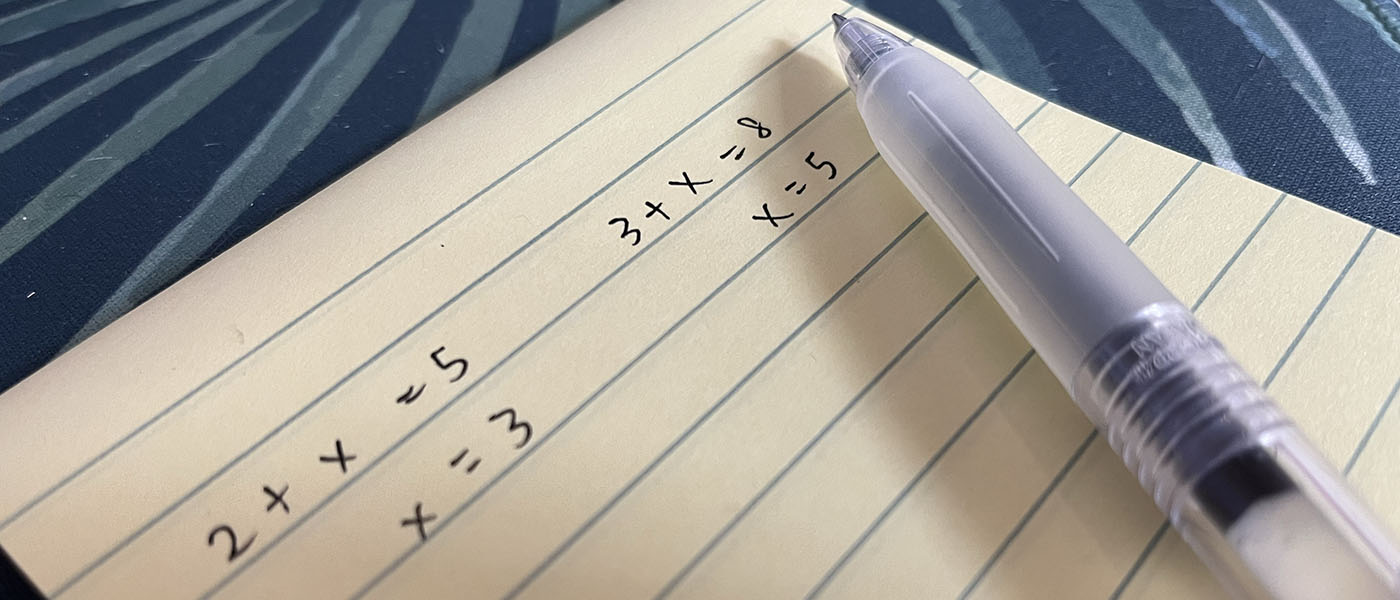 2 + x = 5
x = 3
3 + x = 8
x = 5